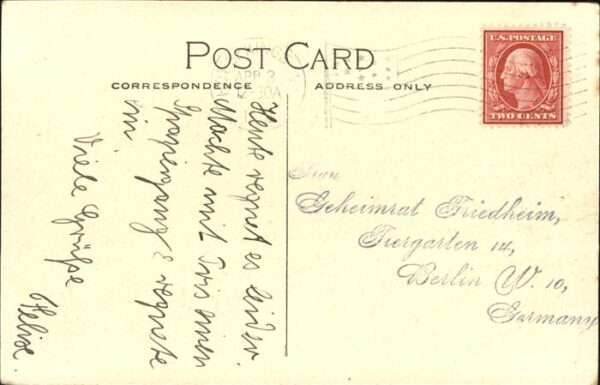 POST CARD
CORRESPONDENCE
ADDRESS ONLY
U.S. POSTAGE
TWO CENTS
APR 3
Heute regnet es leider.
Machte mit Iris einen
Spaziergang & regnete
ein.
Viele Grüße
Felix.
Frau
Geheimrat Friedheim,
Tiergarten 14,
Berlin W. 10,
Germany